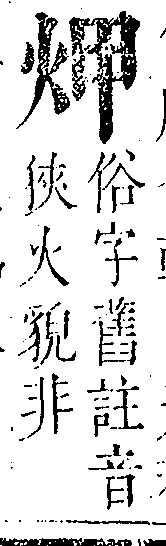 炠
俗字舊註音
俠火貌非